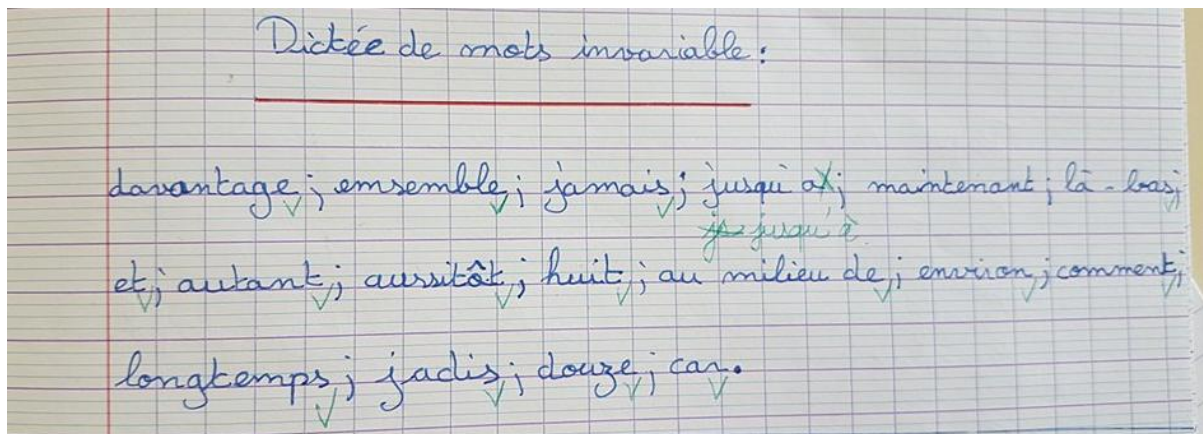 Dictée de mots invariable :
davantage ; ensemble ; jamais ; jusqu'a ; maintenant ; là-bas ;
jusqu'à
et ; autant ; aussitôt ; huit ; au milieu de ; environ ; comment ;
longtemps ; jadis ; douze ; car.